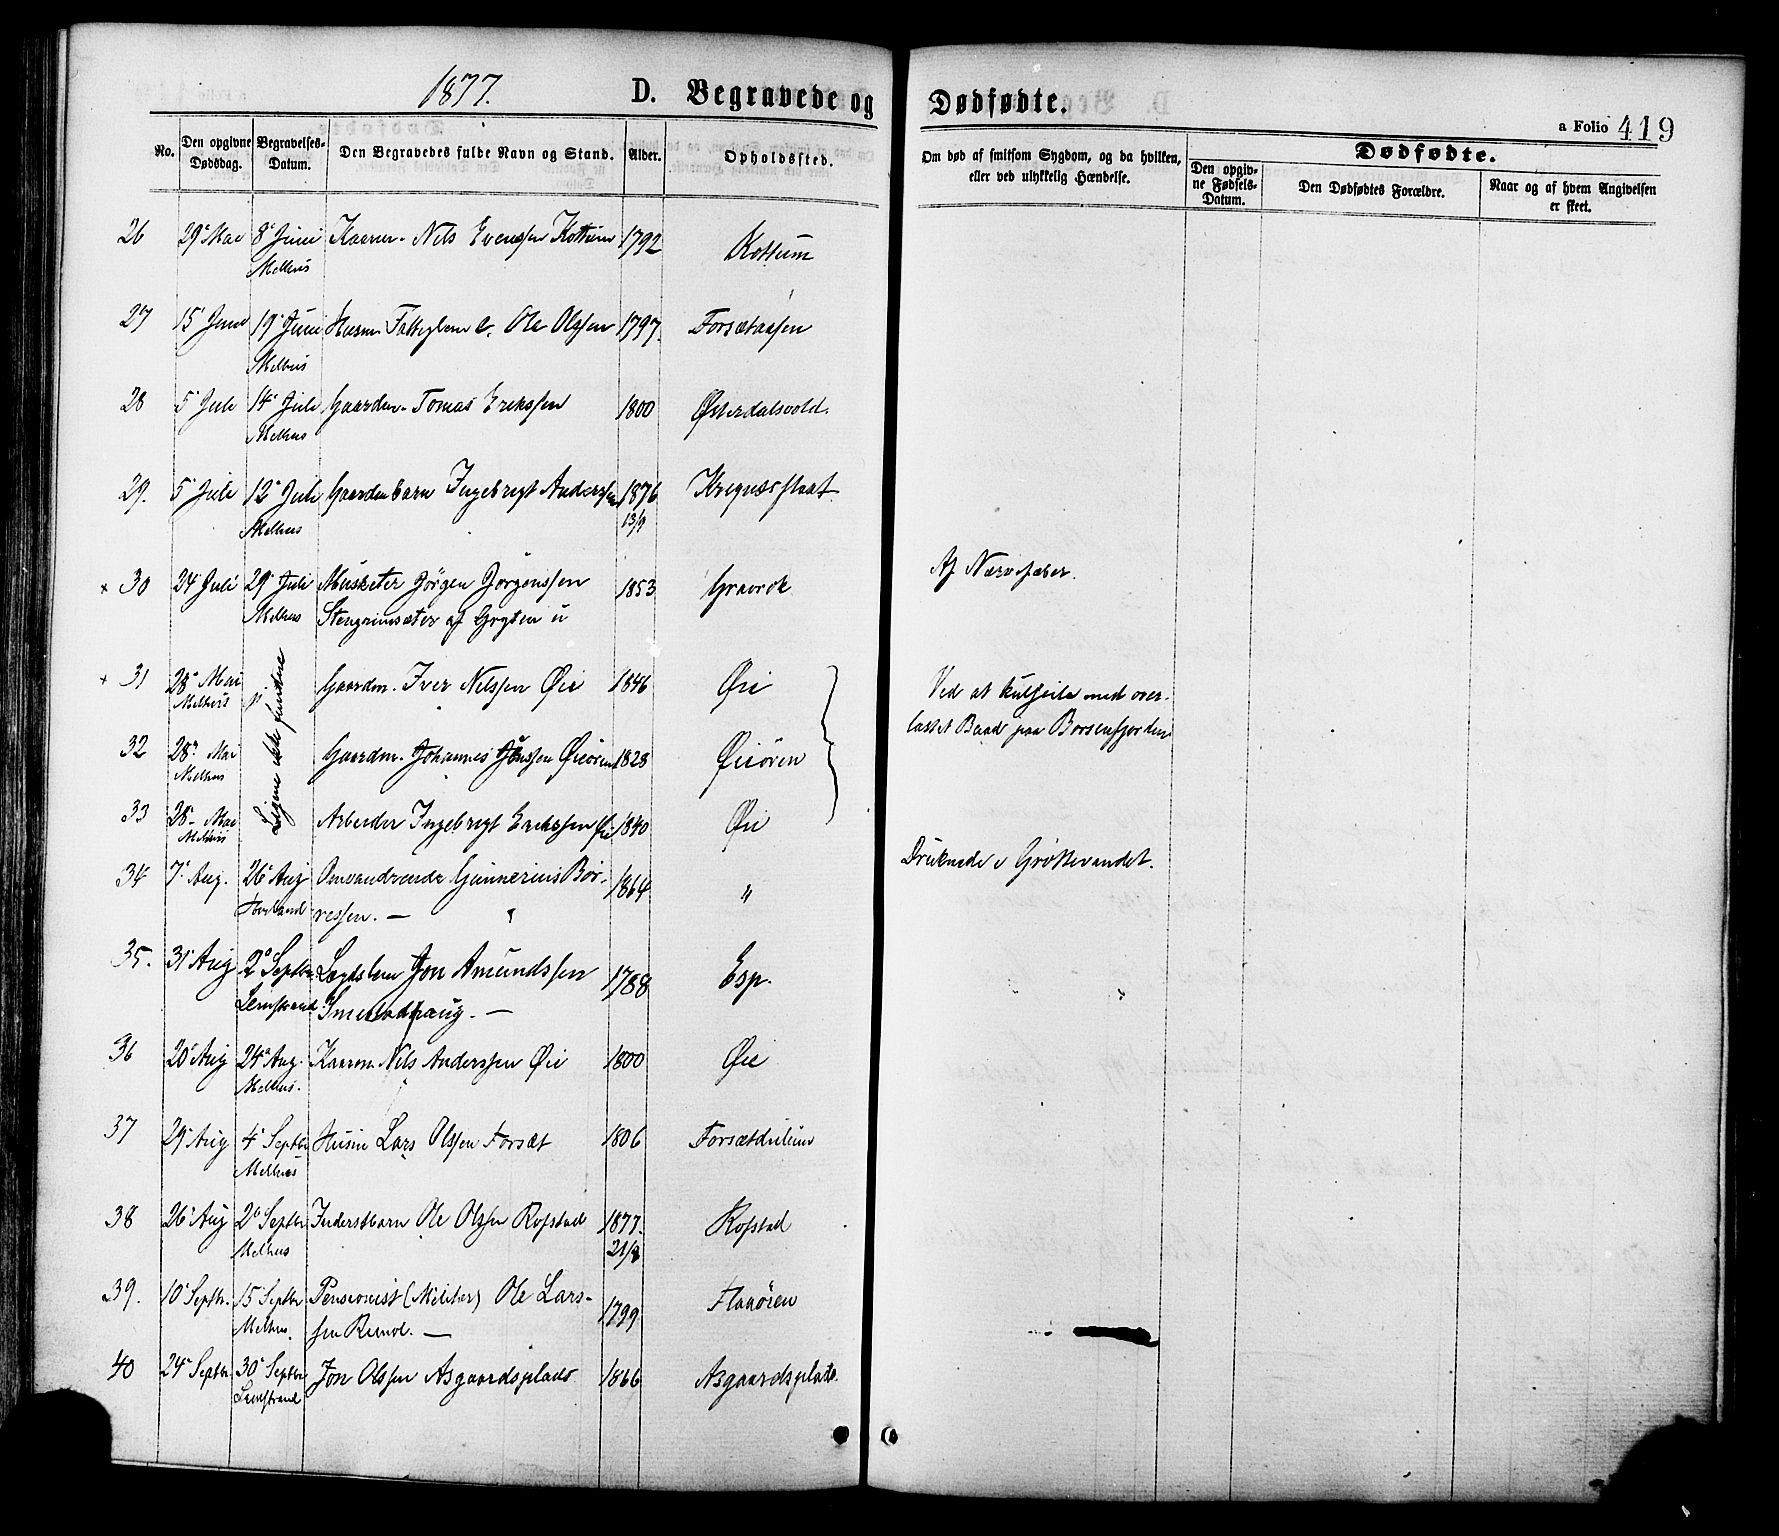 1877.
D. Begravede og Dødfødte.
a Folio 419
No.
Den opgivne Dødsdag.
Begravelses-Datum.
Den Begravedes fulde Navn og Stand.
Alder.
Opholdssted.
Om død af smitsom Sygdom, og da hvilken,
eller ved ulykkelig Hændelse.
Dødfødte.
Den opgiv-
ne Fødsels-
Datum.
Den Dødfødtes Forældre.
Naar og af hvem Angivelsen
er skeet.
26 29 Mai 8 Juni Kaarm. Nils Evenssen Kottum 1792 Kottum
Melhus
27 15 Juni 19 Juni Husm. Fattiglem e. Ole Olssen 1797. Forsætaasen
Melhus
28 5 Juli 14 Juli Gaardm. Tomas Erekssen 1800 Østerdalsvold.
Melhus
29. 5 Juli 12 Juli Gaardm barn Ingebregt Anderssen 1876 Kregnæsflaat
Melhus 13/9
× 30 24 Juli 29 Juli Musketer Jörgen Jörgenssen 1853 Graavrok Af Nærvefeber.
Melhus Stengrimsæter af Grytten
× 31 28 Mai Gaardm. Iver Nilssen Øie 1846 Øie Ved at kulseile med over-
Melhus
Ligene ikke fundne
lastet Baad paa Børsenfjorden
32 28 Mai Gaardm. Johannes Jonssen Øieören 1828 Øieören
Melhus
33 28 Mai Arbeider Ingebregt Erekssen Øie 1840 Øie
Melhus
34 7 Aug. 26 Aug Omvandrende Gunnerius Bör- 1864 " Druknede i Gröttevandet.
ressen. —
35. 31 Aug 2 Septbr Lægdslem Jon Amundssen 1788 Esp.
Leinstrand —
36 20 Aug 24 Aug. Kaarm. Nils Anderssen Øie 1800 Øie
Melhus.
37 29 Aug 4 Septbr Husm Lars Olssen Forsæt 1806
Melhus
38 26 Aug 2 Septbr Inderstbarn Ole Olssen Rofstad 1877. Rofstad
Melhus 21/8
39. 10 Septbr. 15 Septbr Pensionist (Militær) Ole Lars- 1799 Flaaören
Melhus. sen —
40 24 Septbr. 30 Septbr Jon Olssen Asgaardsplads 1866 Asgaardsplads.
Leinstrand